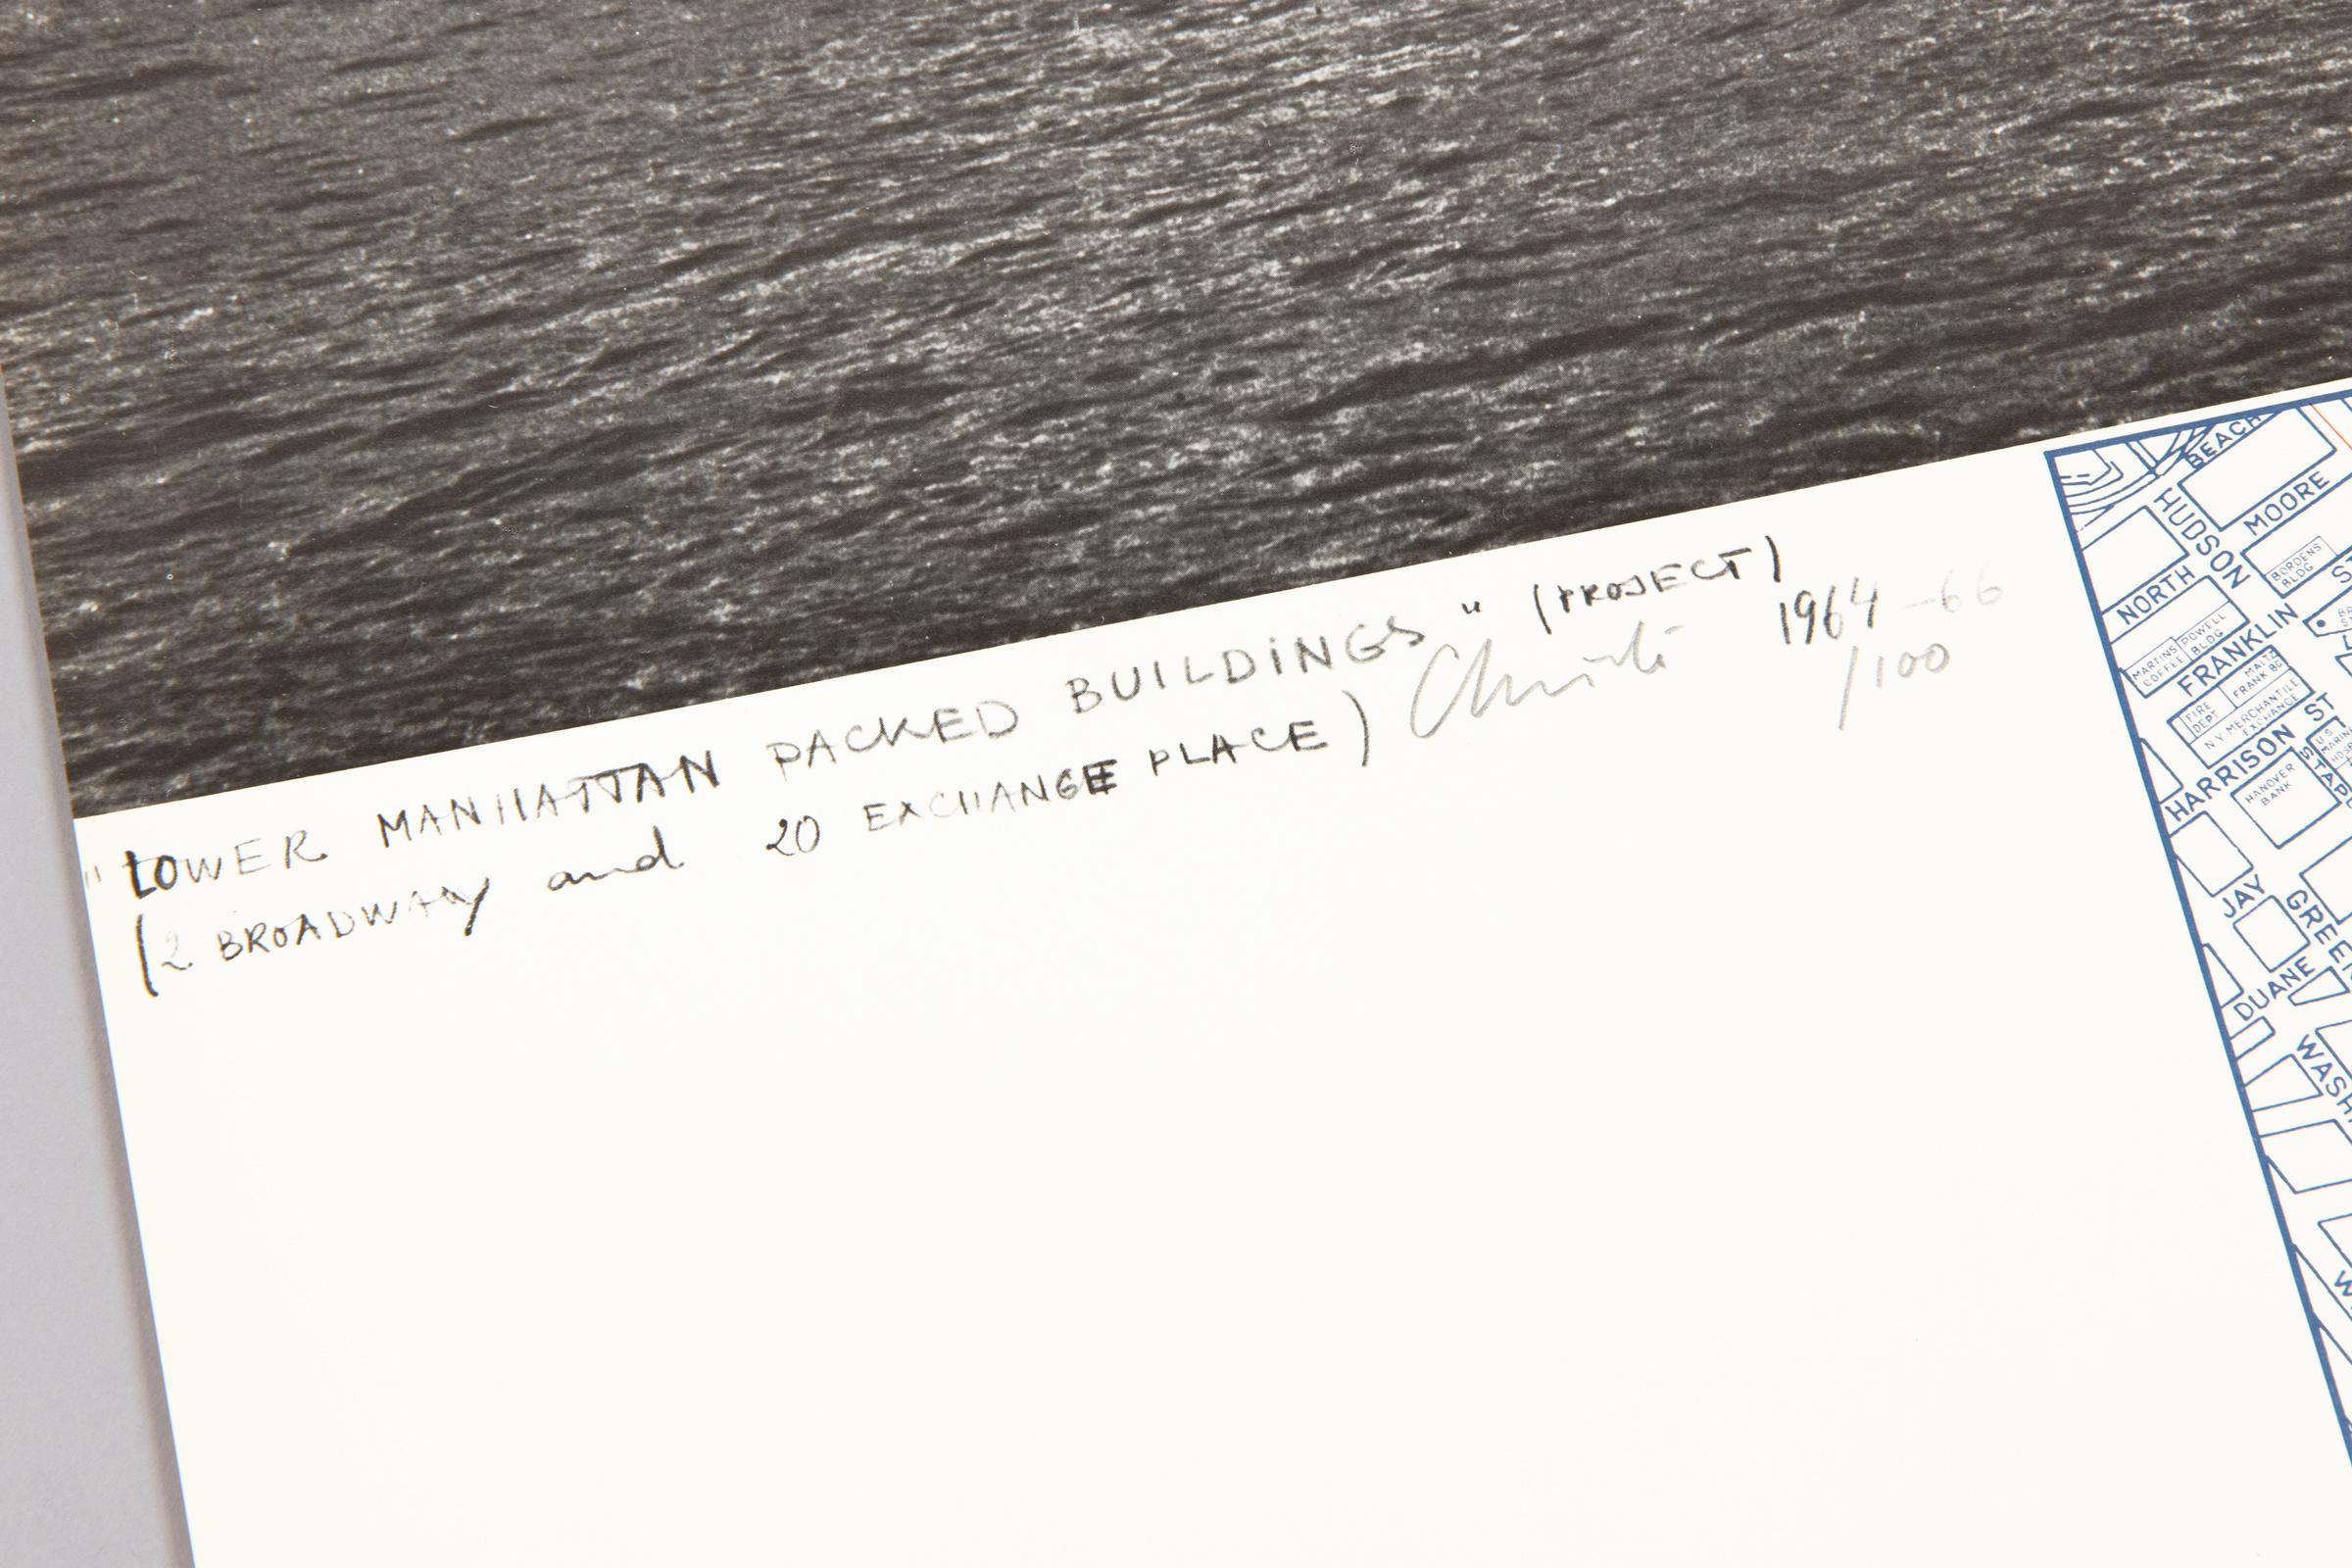 "LOWER MANHATTAN PACKED BUILDINGS" (PROJECT)
(2 BROADWAY and 20 EXCHANGE PLACE) Christo 1964-66
/100
BEACH
HUDSON
MOORE
BORDENS BLDG
NORTH
POWELL BLDG
MARTINS COFFEE
FRANKLIN ST
FRANK BG
FIRE DEPT
N Y MERCHANTILE EXCHANGE
HARRISON ST
HANOVER BANK
JAY
DUANE